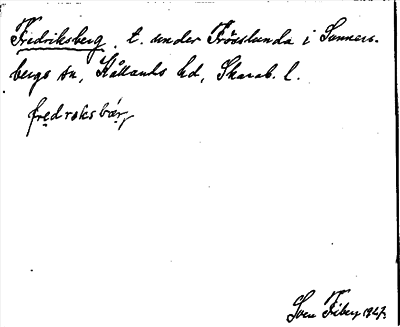 Fredriksberg, t. under Frösslunda i Sunners-
bergs sn, Kållands hd, Skarab. l.
fredroksbär,
Sven Fiberg 1927.